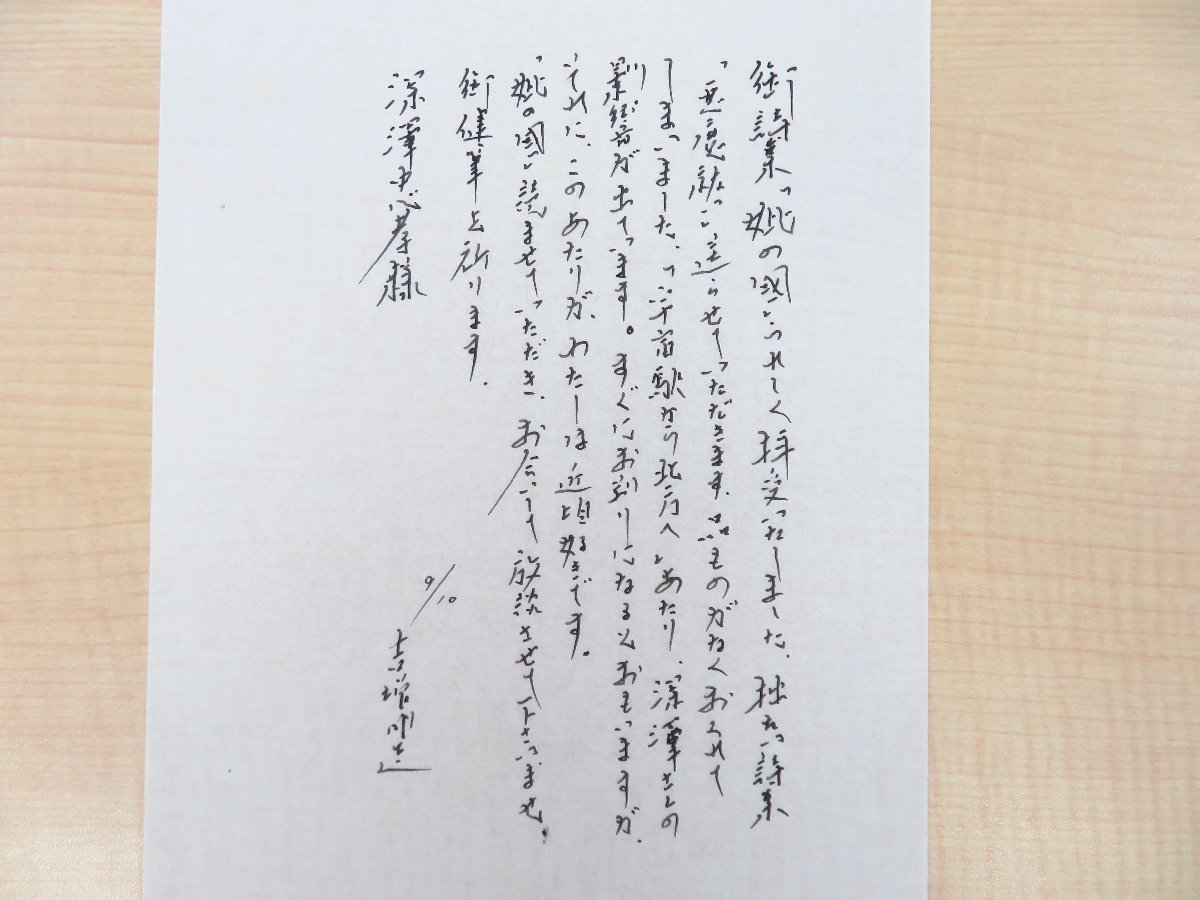 御詩集「妣の国」うれしく拝受いたしました、拙ない詩集
「悪魔祓い」送らせていただきます、品ものがなくおくれて
しまいました、「 駅から北方へ」あたり、深澤さんの
影響が出ています。すぐにお判りになるとおもいますが、
それに、このあたりが、わたしは近頃好きです。
「妣の国」読ませていただき、お会いして放談させて下さいませ、
御健筆を祈ります、
深澤忠孝様
9/10
吉増剛造